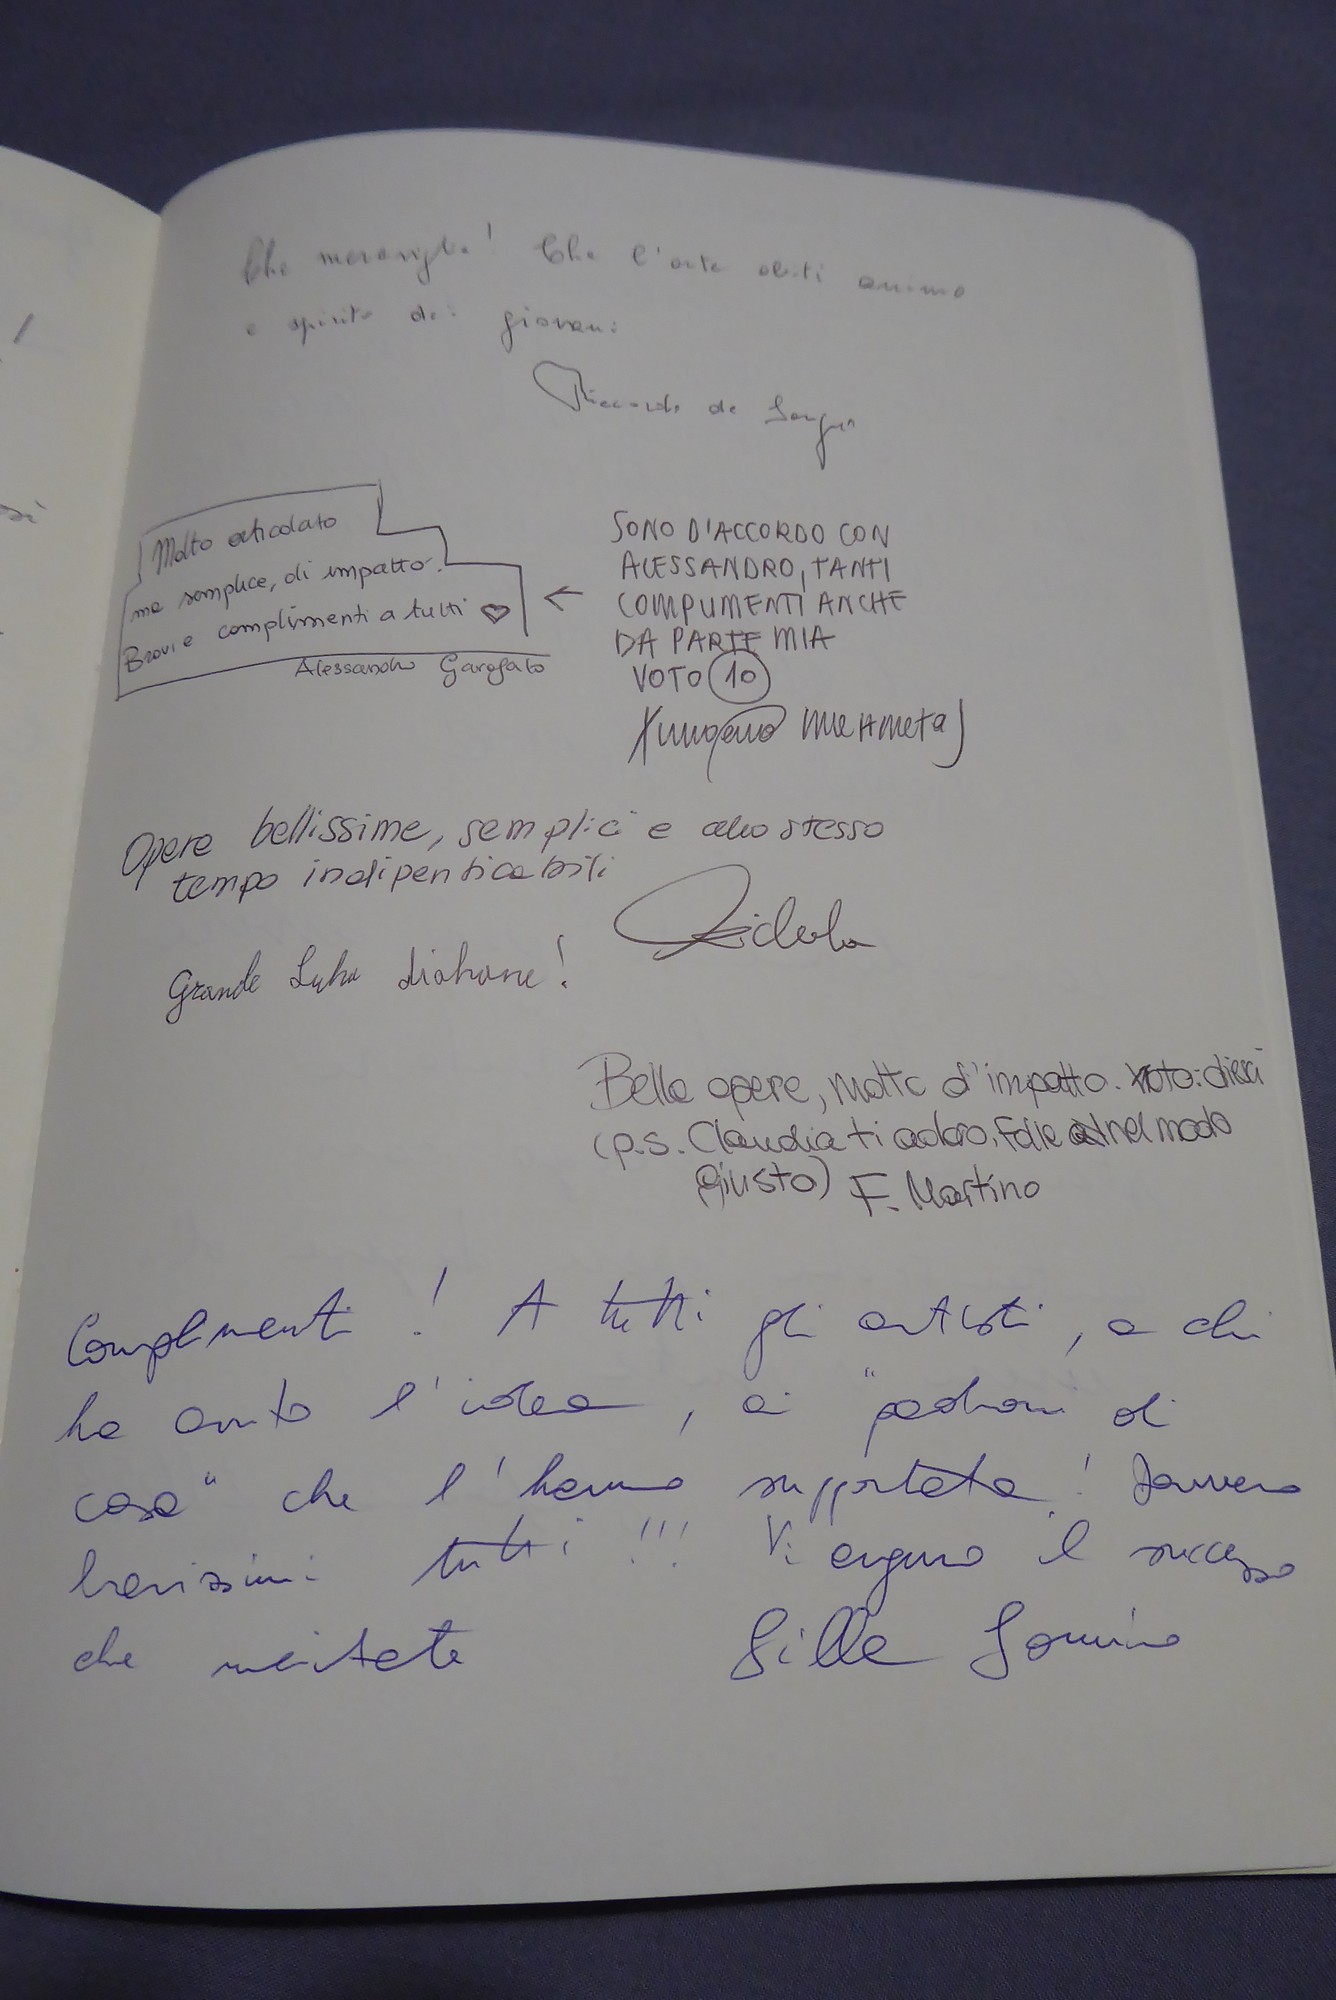 Che meraviglia! Che l'arte abiti animo
e spirito dei giovani
Riccardo de
Molto articolato
ma semplice, di impatto.
Bravi e complimenti a tutti ♡
Alessandro Garofalo
← SONO D'ACCORDO CON
ALESSANDRO, TANTI
COMPLIMENTI ANCHE
DA PARTE MIA
VOTO 10
Opere bellissime, semplici e allo stesso
tempo indipenticabili
Grande diakane!
Belle opere, molto d'impatto. voto: dieci
(p.s. Claudia ti adoro, folle nel modo
giusto) F. Martino
Complimenti! A tutti gli artisti, a chi
ha avuto l'idea, ai "padroni di
casa" che l'hanno supportata! Davvero
bravissimi tutti!!! Vi auguro il successo
che meritate